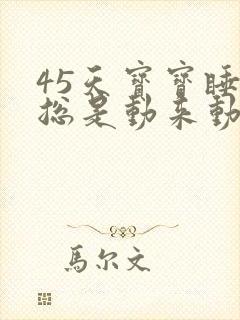 45天寶寶睡
總是動來動
馬尔文